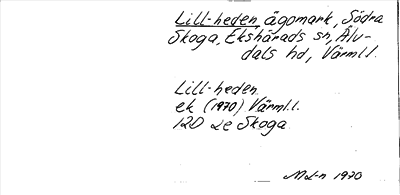 Lill-heden, ägomark, Södra
Skoga, Ekshärads sn, Älv-
dals hd, Värml.
Lill-heden
ek (1970) Värml.
12D 2e Skoga
1970